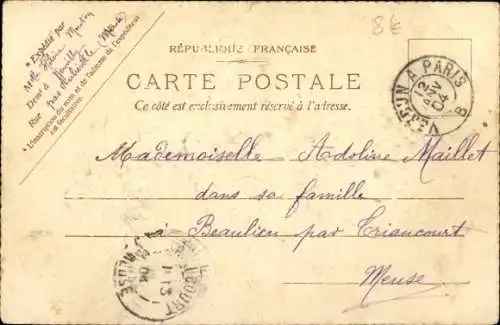 8€
* Expédié par
Mlle
Demt à
Rue par
* L'inscription du nom et de l'adresse de l'expéditeur
est facultative.
RÉPUBLIQUE FRANÇAISE
CARTE POSTALE
Ce côté est exclusivement réservé à l'adresse.
VERDUN A PARIS
12
AVR
04
B
Mademoiselle Adoline Maillet
dans sa famille
à Beaulieu par Triaucourt
Meuse
13
04
MEUSE